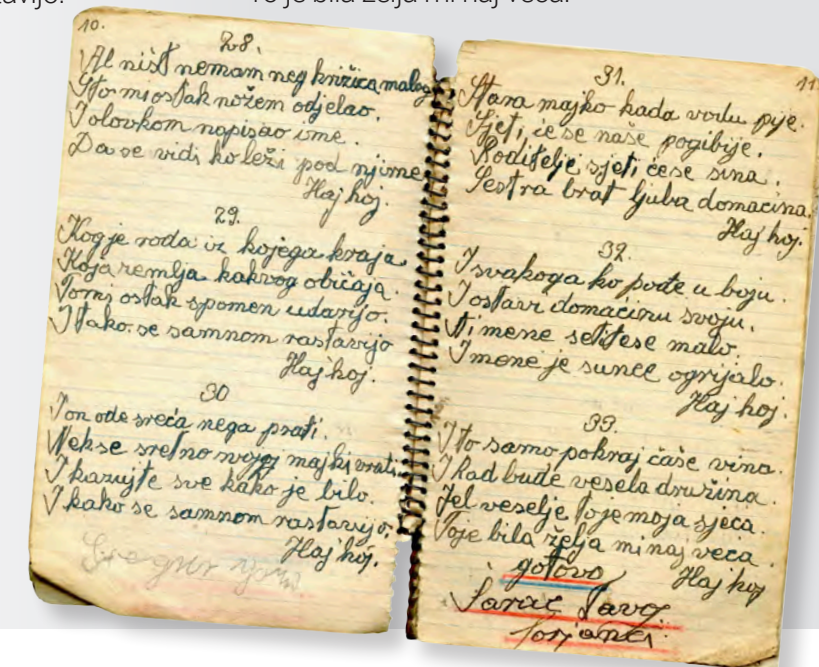 To je bila želja mi naj veća.
10.
28.
Al ništ nemam neg križića malog
Što mi ostak nožem odjelao.
I olovkom napisao ime.
Da se vidi ko leži pod njime
Haj hoj.
29.
Kog je roda iz kojega kraja
Koja zemlja kakvog običaja.
Tomi ostak spomen udarijo.
I tako se samnom rastavijo
Haj hoj.
30
I on ode sreća nega prati.
Nek se sretno svojoj majki vrati.
I kazujte sve kako je bilo.
I kako se samnom rastavijo.
Haj hoj.
11.
31.
Stara majko kada vodu pije.
Sjeti će se naše pogibije.
Roditelje sjeti ćese sina.
Sestra brat ljuba domaćina.
Haj hoj.
32.
I svakoga ko pođe u boju.
I ostavi domaćinu svoju.
Ti mene setitese malo.
I mene je sunce ogrijalo.
Haj hoj.
33.
I to samo pokraj čaše vina.
I kad bude vesela družina.
Jel veselje toje moja sjeća.
Toje bila želja mi naj veća.
gotovo Haj hoj
Pavo